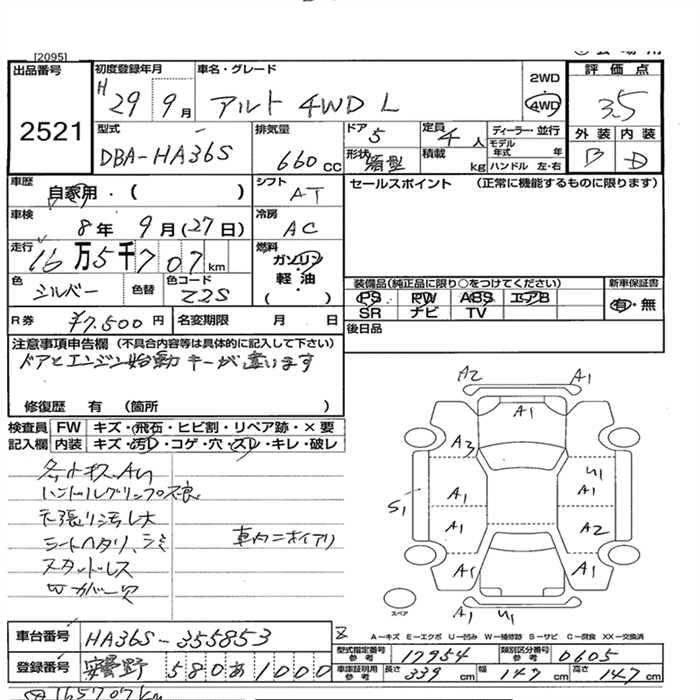 [2095]
出品番号
2521
初度登録年月
H 29 9月
車名・グレード
アルト 4WD L
2WD
4WD
評価点
3.5
外装 内装
B D
型式
DBA-HA36S
排気量
660cc
ドア 5
形状 箱型
定員 4人
積載 kg
ディーラー・並行
モデル年式 年式
ハンドル 左・右
車歴
自家用・( )
シフト
AT
セールスポイント (正常に機能するものに限ります)
車検
8年 9月(27日)
冷房
AC
走行
16万5千707km
燃料
ガソリン
軽油
( )
色
シルバー
色替
色コード
Z2S
装備品(純正品に限り○をつけてください)
新車保証書
PS PW ABS エアB
有・無
SR ナビ TV
R券 ¥7,500円
名変期限 月 日
後日品
注意事項申告欄(不具合内容等は具体的に記入して下さい)
ドアとエンジン始動キーが違います
修復歴 有 (箇所 )
検査員
記入欄
FW キズ・飛石・ヒビ割・リペア跡・×要
内装 キズ・汚れ・コゲ・穴・スレ・キレ・破レ
ハンドルグリップ不良
天張り汚レ大
シートヘタリ、シミ
スタッドレス
車内ニオイアリ
A2 A1
A1
A3
U1
A1
A1
S1
A1
A2
A1
A1
U1
スペア
A－キズ E－エクボ U－凹み W－補修跡 S－サビ C－腐食 XX－交換済
車台番号
HA36S-355853
型式指定番号 参考
17954
類別区分番号 参考
0605
登録番号
安曇野 580あ1000
車車証明用 参考
長さ 339cm
幅 147cm
高さ 147cm
165707km